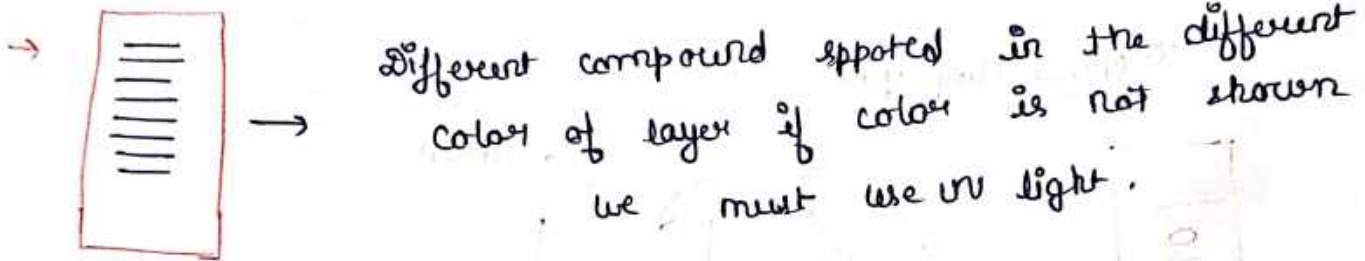 Different compound sppoted in the different
color of layer if color is not shown
we must use UV light.